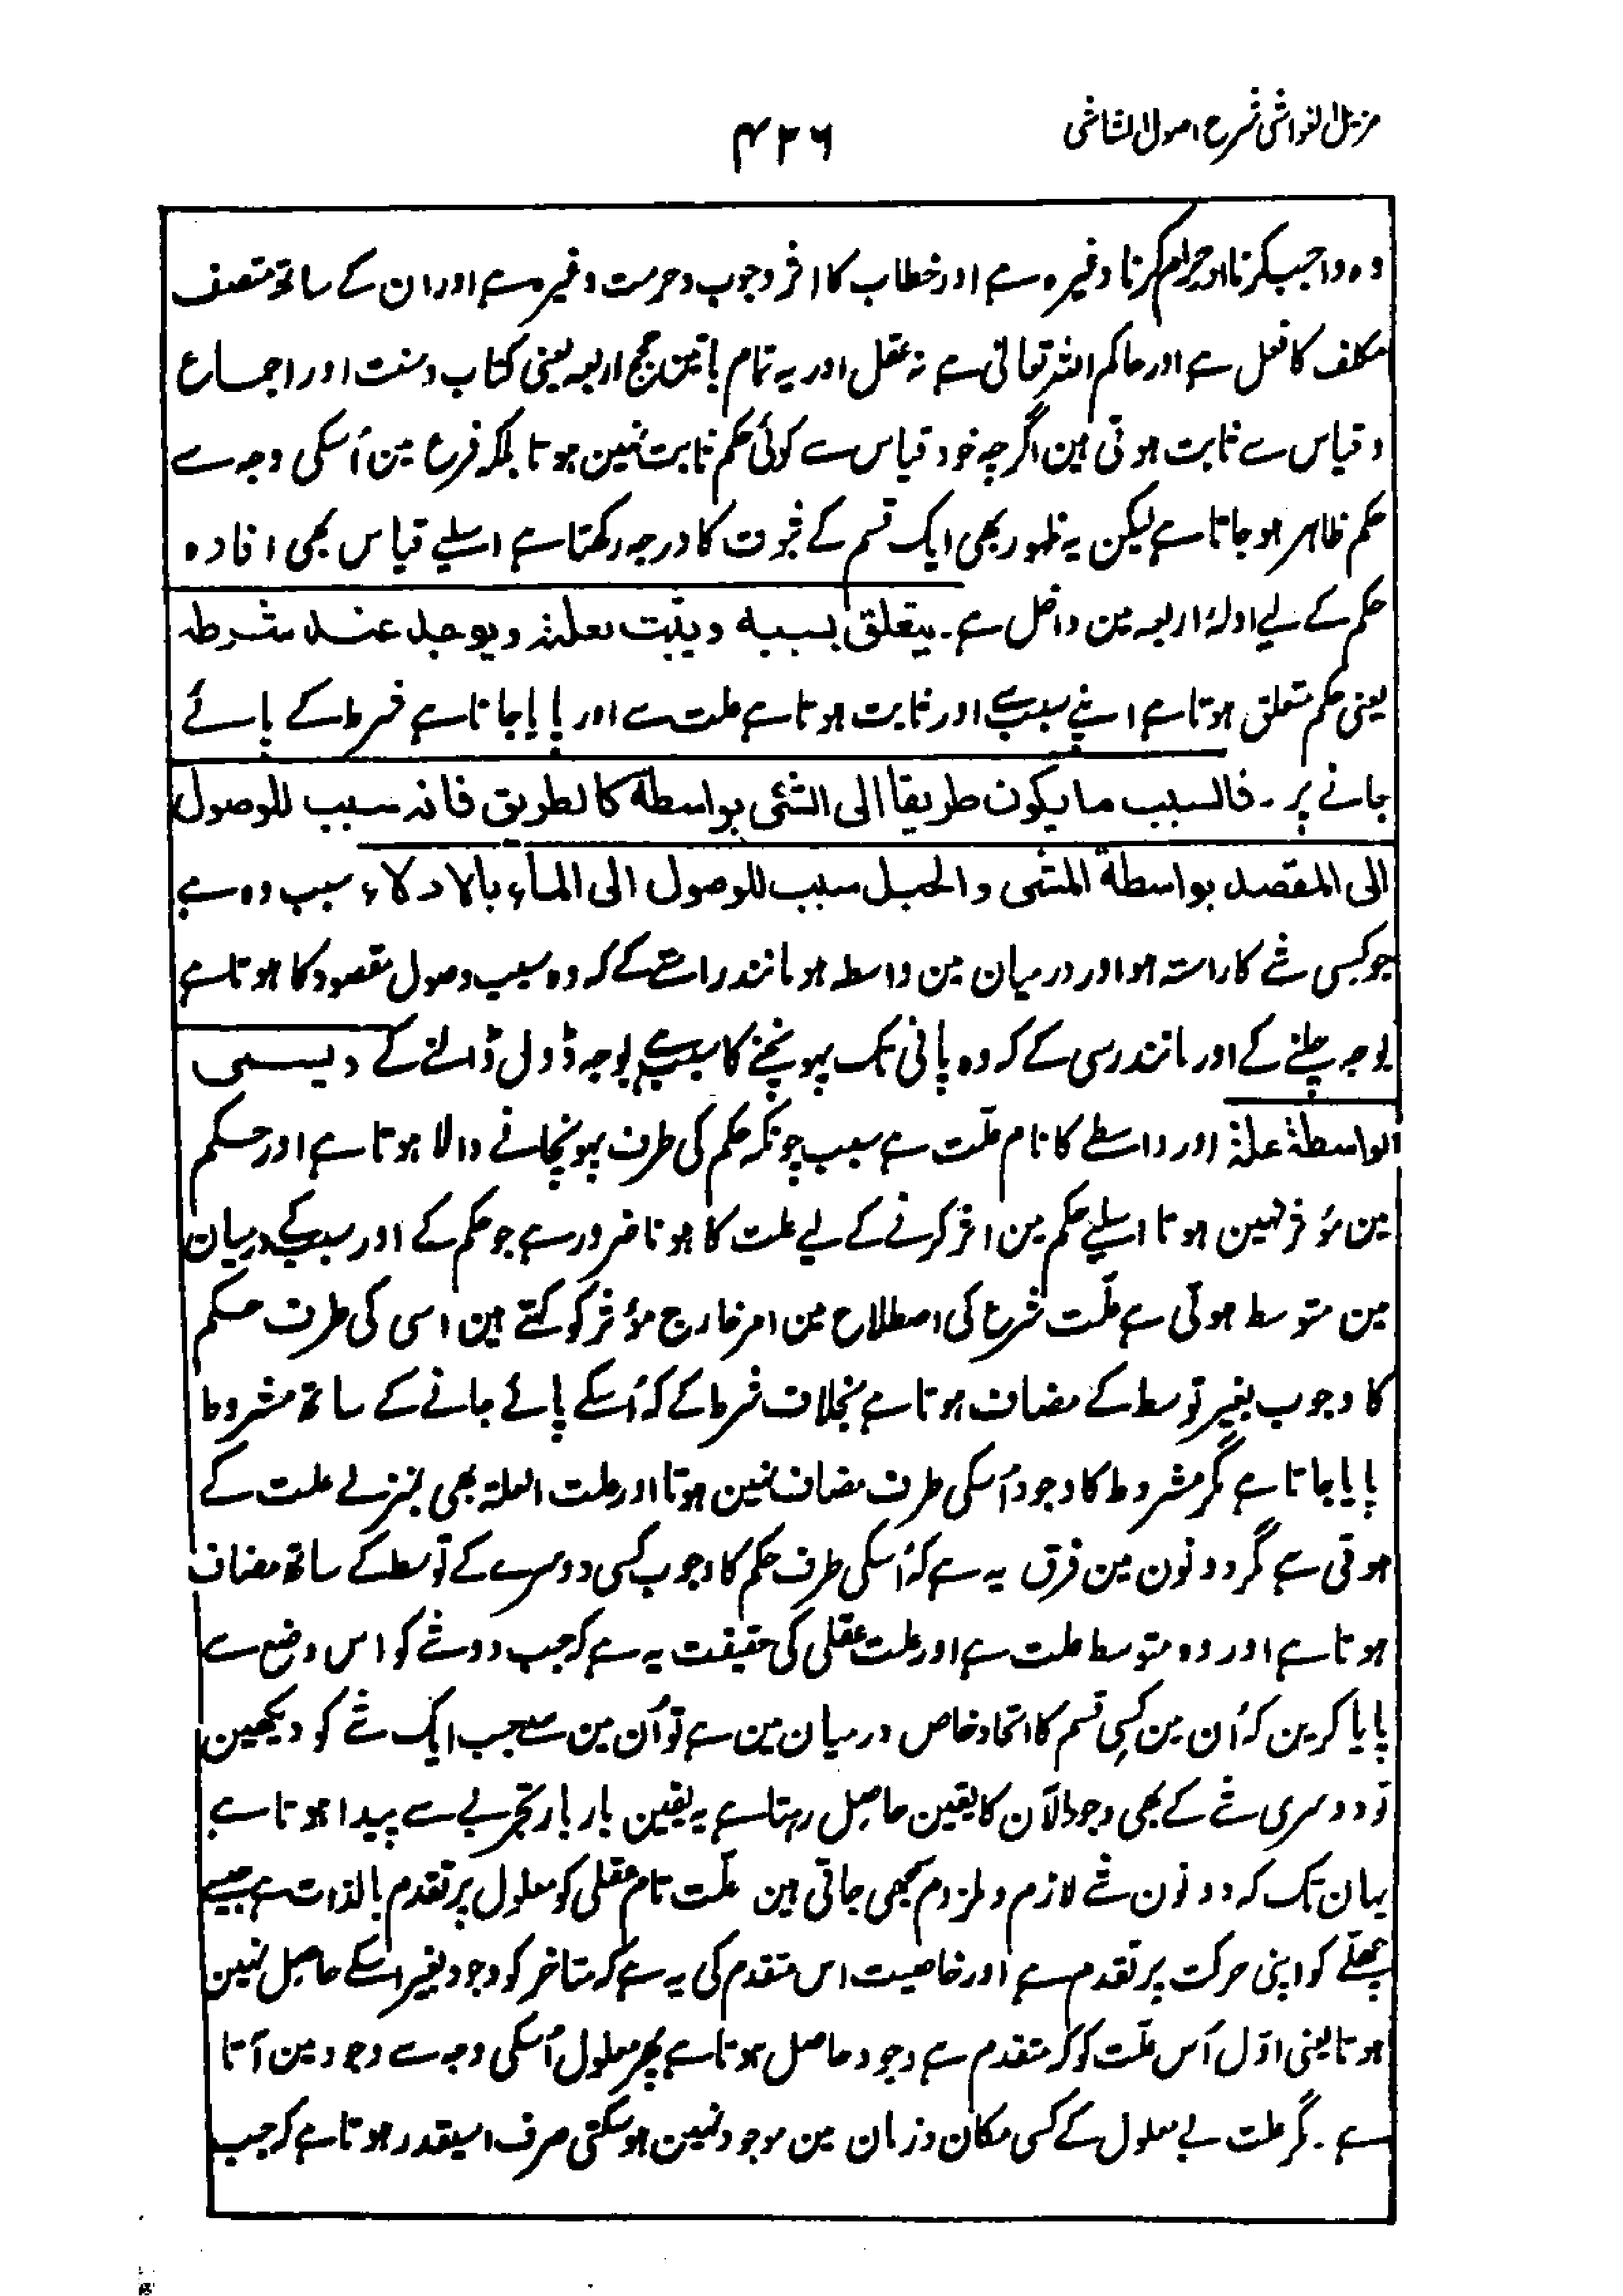 مزیل الغواشی شرح اصول الشاشی
۴۲۶
وہ واجب کرنا اور حرام کرنا وغیرہ ہے اور خطاب کا اثر وجوب و حرمت وغیرہ ہے اور ان کے ساتھ متصف
مکلف کا فعل ہے اور حاکم اللہ تعالیٰ ہے نہ عقل اور یہ تمام باتین حجج اربعہ یعنی کتاب و سنت اور اجماع
و قیاس سے ثابت ہوتی ہین اگرچہ خود قیاس سے کوئی حکم ثابت نہین ہوتا بلکہ فرع مین اُسکی وجہ سے
حکم ظاہر ہو جاتا ہے لیکن یہ ظہور بھی ایک قسم کے ثبوت کا درجہ رکھتا ہے اسلیے قیاس بھی افادہ
حکم کے لیے ادلۂ اربعہ مین داخل ہے۔ یتعلق بسببہ ویثبت بعلتہ ویوجد عند شرطہ
یعنی حکم متعلق ہوتا ہے اپنے سبب سے اور ثابت ہوتا ہے علت سے اور پایا جاتا ہے شرط کے پائے
جانے پر۔ فالسبب ما یکون طریقا الی الشئی بواسطۃ کالطریق فانہ سبب للوصول
الی المقصد بواسطۃ المشی والحبل سبب للوصول الی الماء بالادلاء سبب وہ ہے
جو کسی شے کا راستہ ہو اور درمیان مین واسطہ ہو مانند راستے کے کہ وہ سبب وصول مقصود کا ہوتا ہے
بوجہ چلنے کے اور مانند رسی کے کہ وہ پانی تک پہونچنے کا سبب ہے بوجہ ڈول ڈالنے کے ویسمی
الواسطۃ علۃ اور واسطے کا نام علّت ہے سبب چونکہ حکم کی طرف پہونچانے والا ہوتا ہے اور حکم
مین مؤثر نہین ہوتا اسلیے حکم مین اثر کرنے کے لیے علت کا ہونا ضرور ہے جو حکم کے اور سبب کے درمیان
مین متوسط ہوتی ہے علّت شرع کی اصطلاح مین امر خارج مؤثر کو کہتے ہین اسی کی طرف حکم
کا وجوب بغیر توسط کے مضاف ہوتا ہے بخلاف شرط کے کہ اُسکے پائے جانے کے ساتھ مشروط
پایا جاتا ہے مگر مشروط کا وجود اُسکی طرف مضاف نہین ہوتا اور علت العلۃ بھی بمنزلے علت کے
ہوتی ہے مگر دونون مین فرق یہ ہے کہ اُسکی طرف حکم کا وجوب کسی دوسرے کے توسط کے ساتھ مضاف
ہوتا ہے اور وہ متوسط علت ہے اور علت عقلی کی حقیقت یہ ہے کہ جب دو شے کو اس وضع سے
پایا کرین کہ اُن مین کسی قسم کا اتحاد خاص درمیان مین ہے تو اُن مین سے جب ایک شے کو دیکھین
تو دوسری شے کے بھی وجود الآن کا یقین حاصل رہتا ہے یہ یقین بار بار تجربے سے پیدا ہوتا ہے
یہان تک کہ دونون شے لازم و ملزوم سمجھی جاتی ہین علّت تام عقلی کو معلول پر تقدم بالذات ہے جیسے
چھلّے کو اپنی حرکت پر تقدم ہے اور خاصیت اس متقدم کی یہ ہے کہ متاخر کو وجود بغیر اسکے حاصل نہین
ہوتا یعنی اوّل اُس علّت کو کہ متقدم ہے وجود حاصل ہوتا ہے پھر معلول اُسکی وجہ سے وجود مین آتا
ہے۔ مگر علت بے معلول کے کسی مکان و زمان مین موجود نہین ہو سکتی صرف اسیقدر ہوتا ہے کہ جب